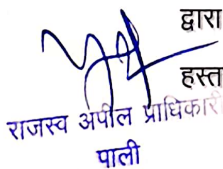 द्वारा
हस्त
राजस्व अपील प्राधिकारी
पाली